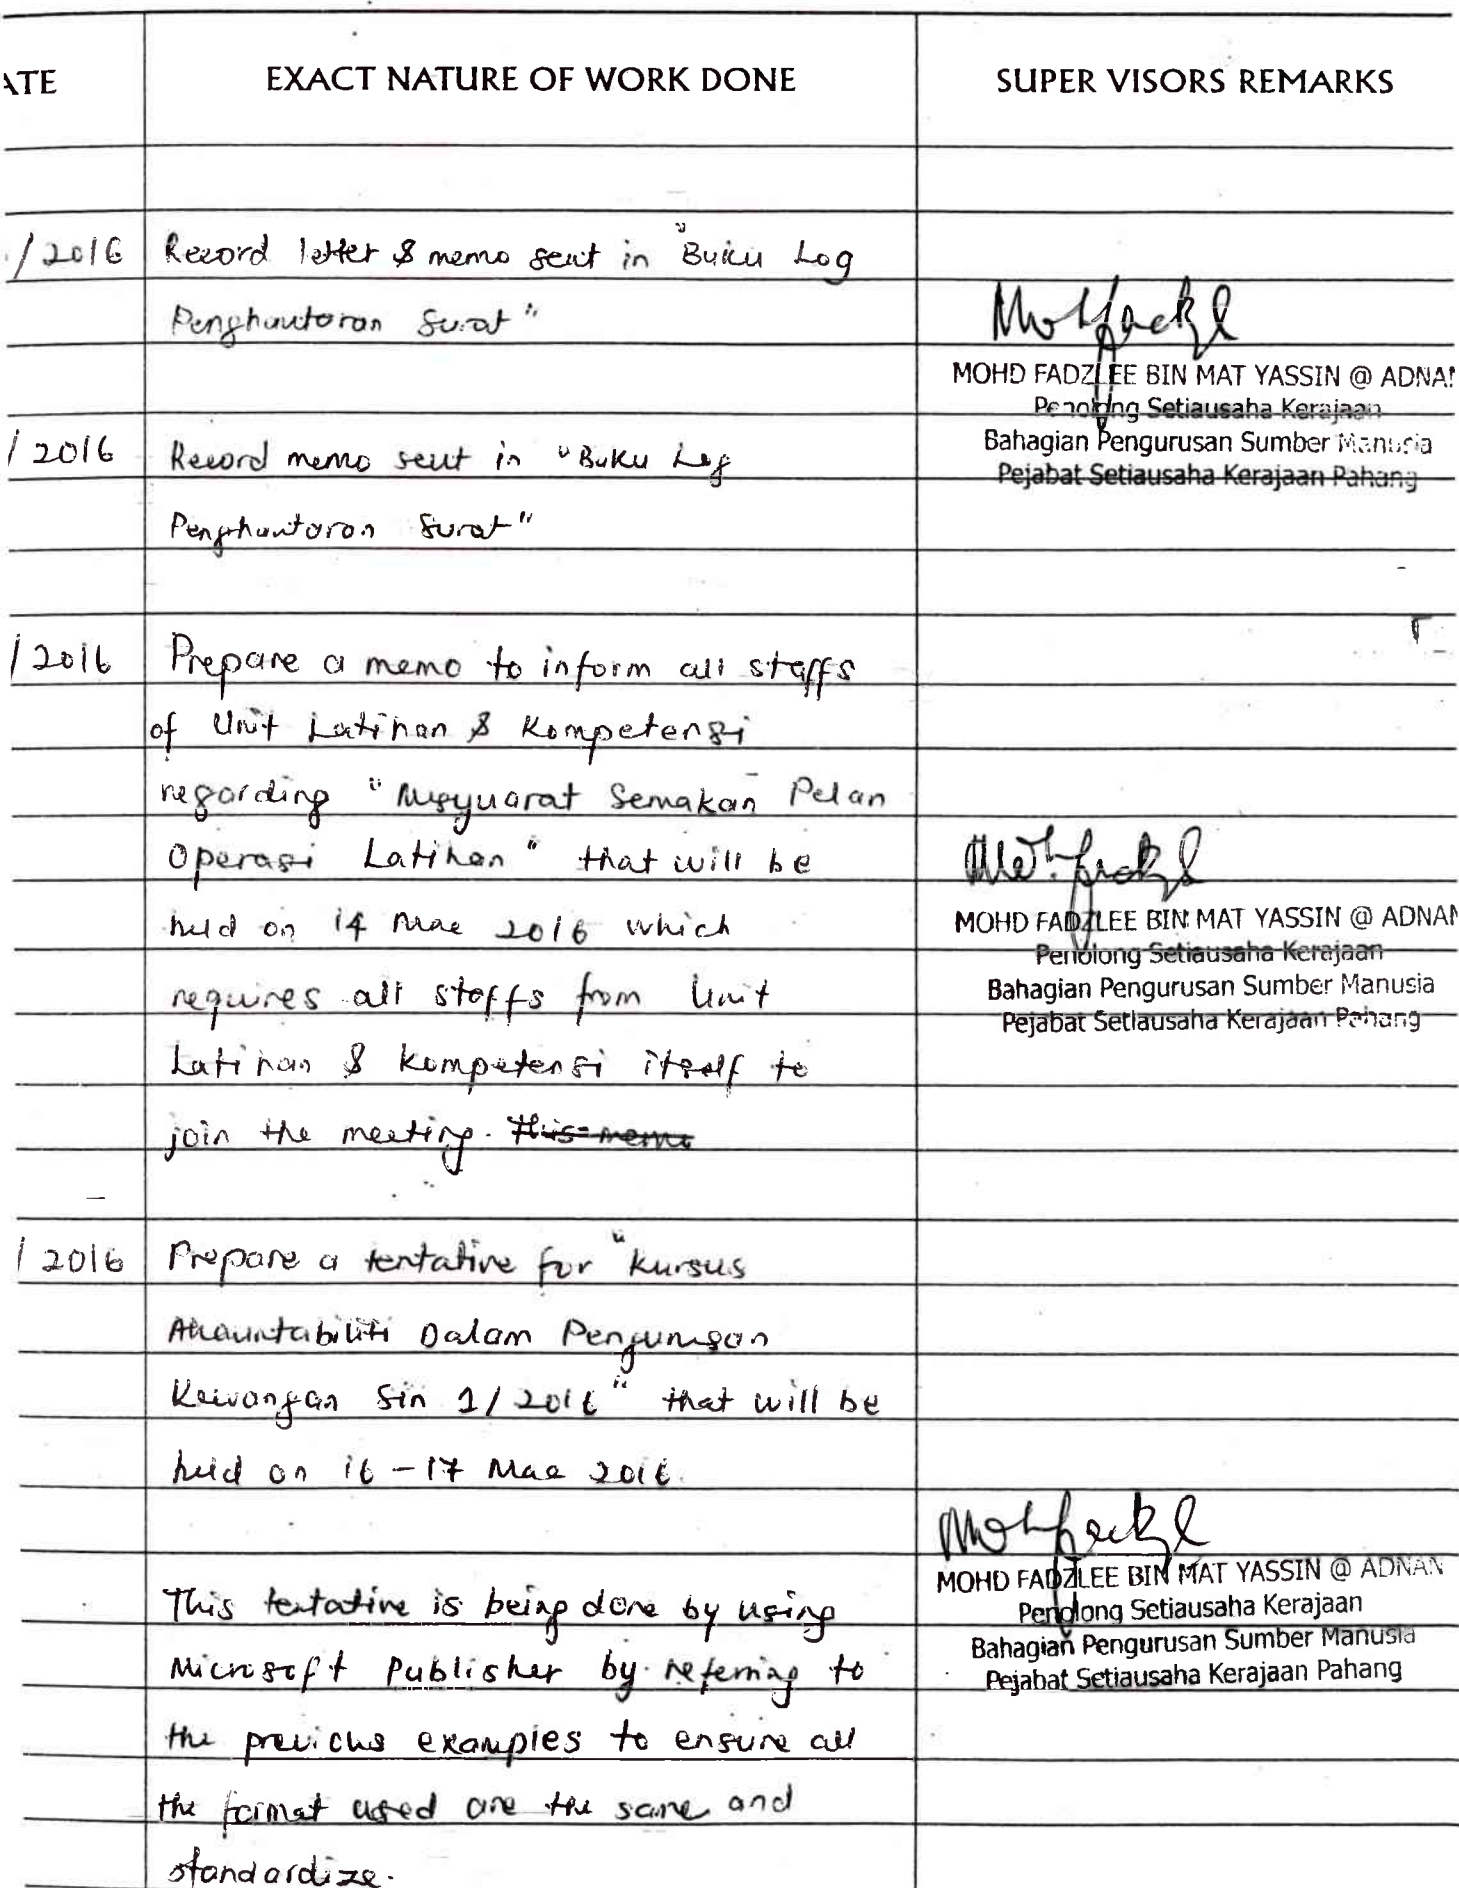 ATE EXACT NATURE OF WORK DONE SUPER VISORS REMARKS
/2016 Record letter & memo sent in "Buku Log
Penghantaran Surat"
MOHD FADZLEE BIN MAT YASSIN @ ADNAN
Penolong Setiausaha Kerajaan
Bahagian Pengurusan Sumber Manusia
Pejabat Setiausaha Kerajaan Pahang
/2016 Record memo sent in "Buku Log
Penghantaran Surat"
/2016 Prepare a memo to inform all staffs
of Unit Latihan & Kompetensi
regarding "Mesyuarat Semakan Pelan
Operasi Latihan" that will be
held on 14 Mac 2016 which
requires all staffs from Unit
Latihan & Kompetensi itself to
join the meeting. This memo
MOHD FADZLEE BIN MAT YASSIN @ ADNAN
Penolong Setiausaha Kerajaan
Bahagian Pengurusan Sumber Manusia
Pejabat Setiausaha Kerajaan Pahang
/2016 Prepare a tentative for "Kursus
Akauntabiliti Dalam Pengurusan
Kewangan Siri 1/2016" that will be
held on 16-17 Mac 2016.
This tentative is being done by using
Microsoft Publisher by referring to
the previous examples to ensure all
the format used are the same and
standardize.
MOHD FADZLEE BIN MAT YASSIN @ ADNAN
Penolong Setiausaha Kerajaan
Bahagian Pengurusan Sumber Manusia
Pejabat Setiausaha Kerajaan Pahang